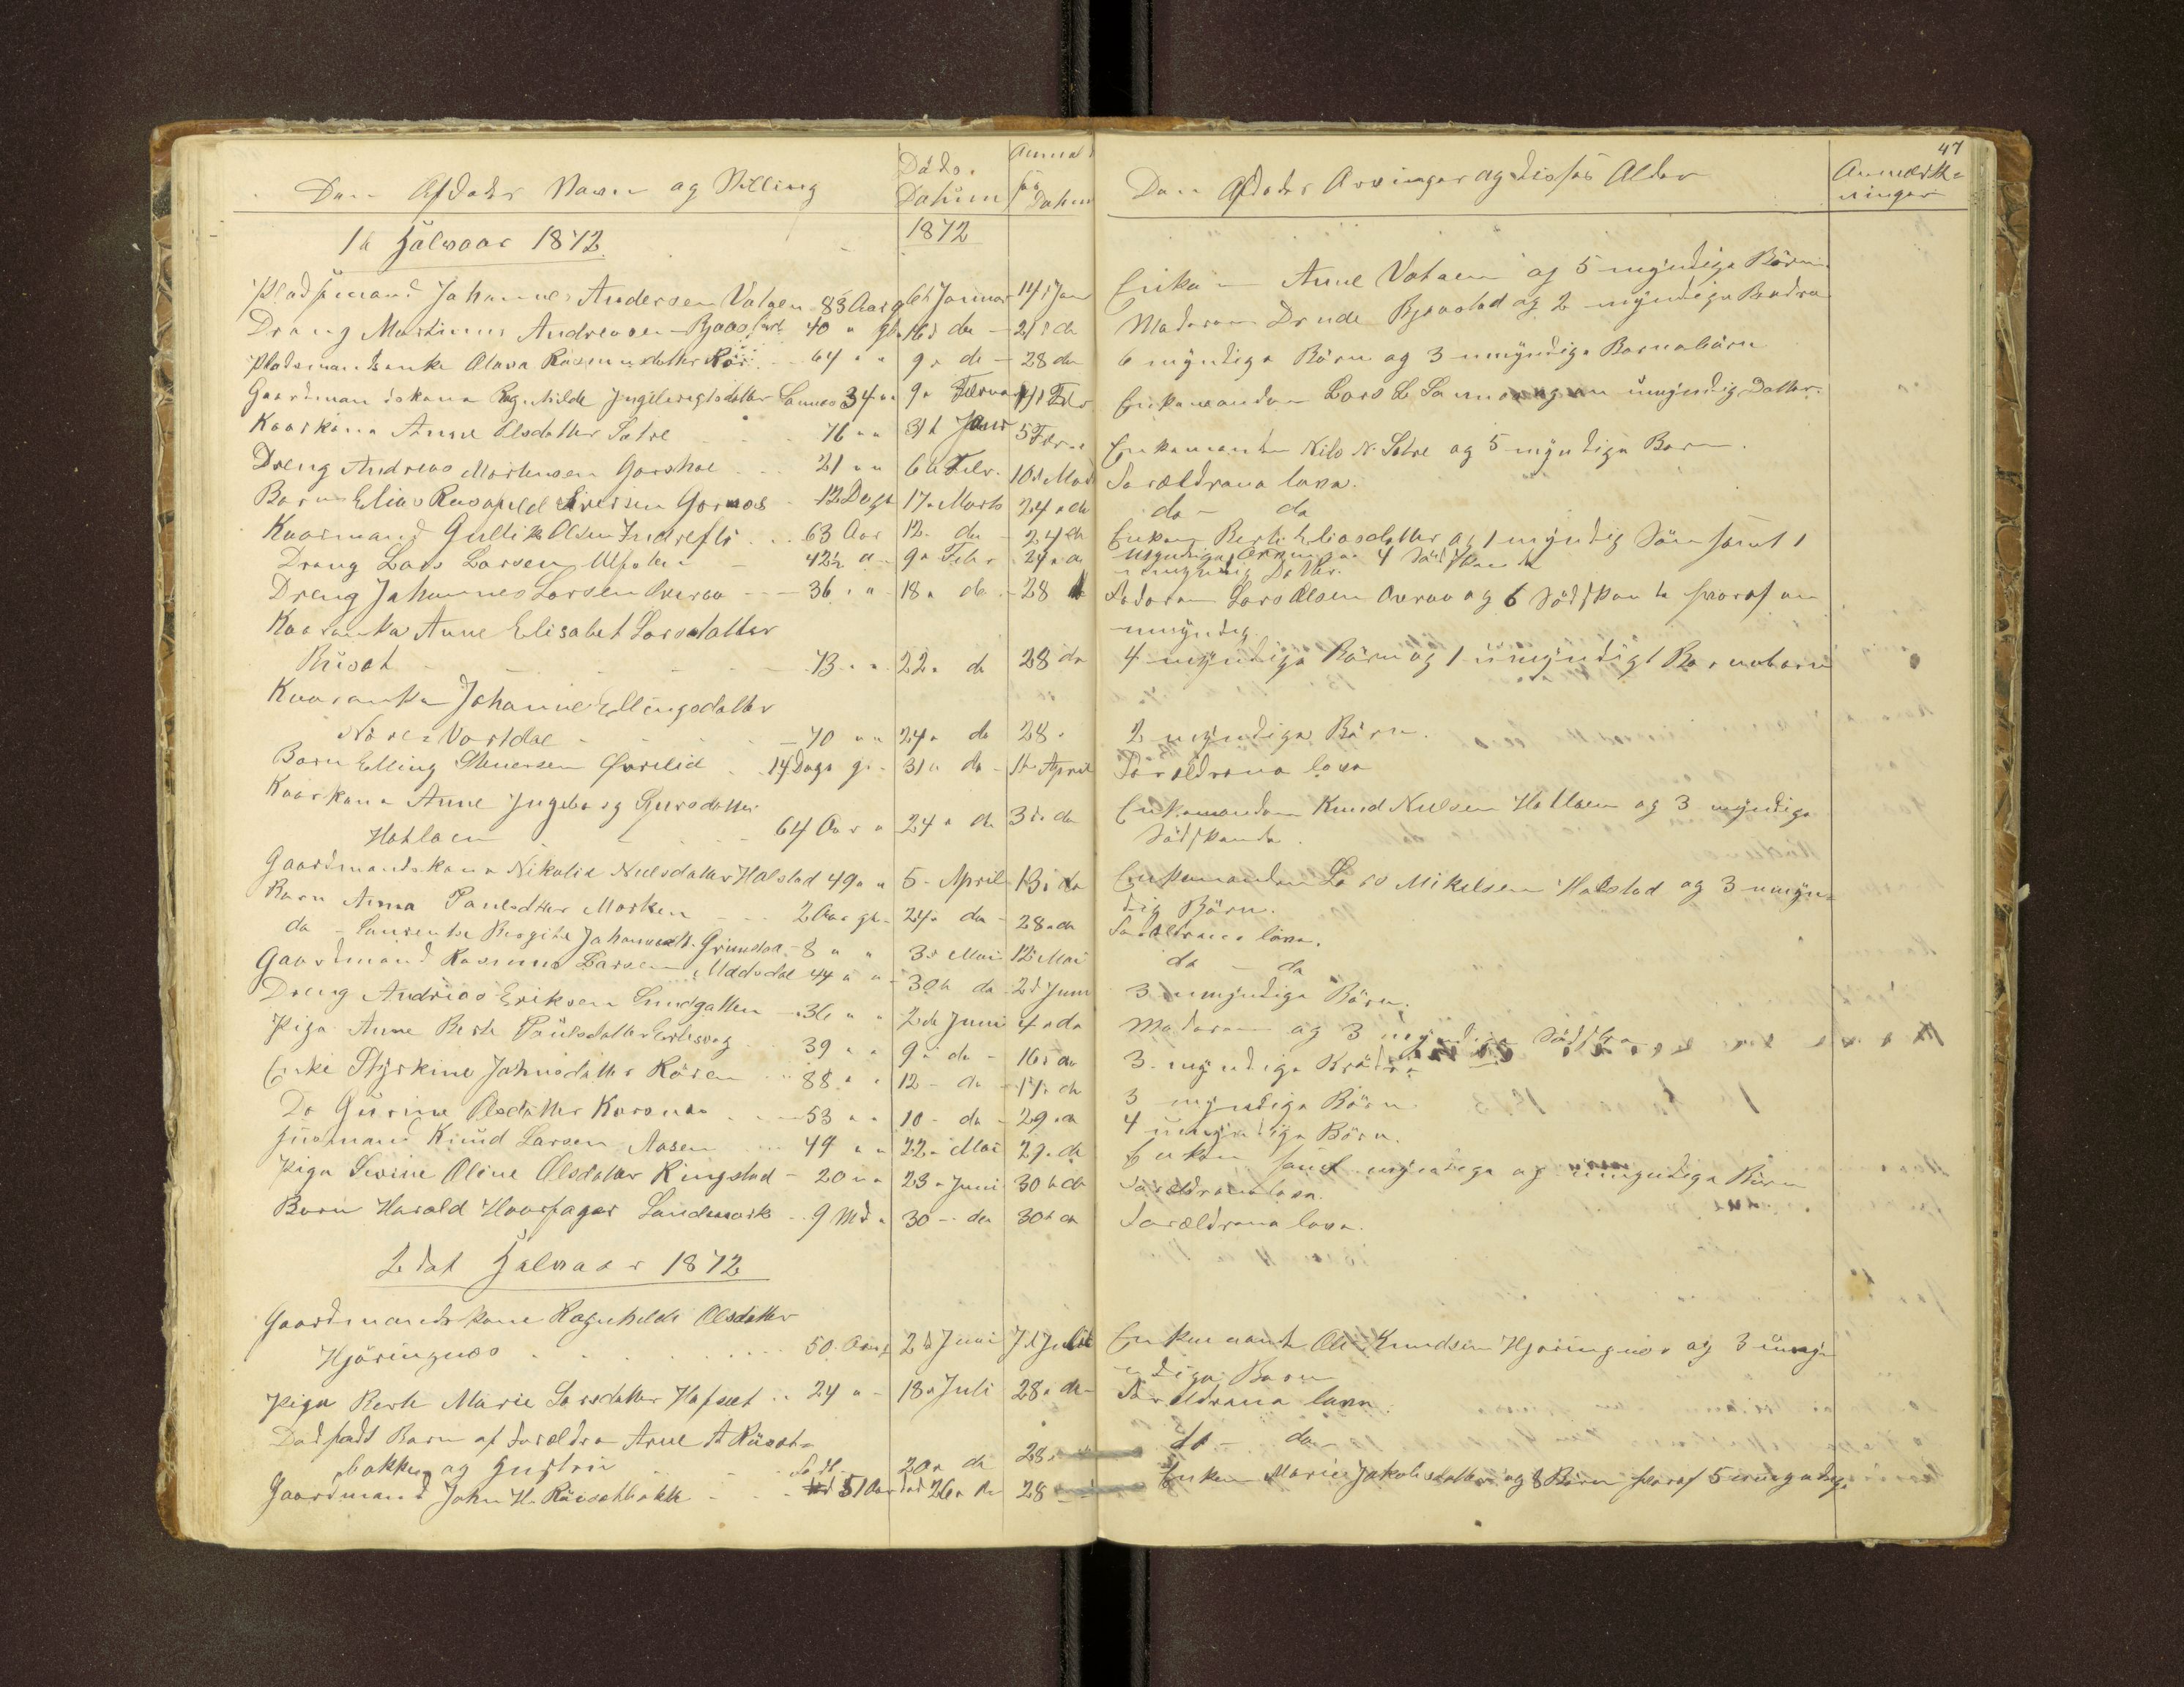 47
Den Afdødes Navn og Stilling Døds. Datum Anmel- sens Datum Den Afdødes Arvinger og disses Alder Anmærk- ninger
1te Halvaar 1872. 1872
Pladsmand Johannes Andersen Vataen 83 Aar g. 6te Januar 14d Jan Enken Anne Vataen og 5 myndige Børn.
Dreng Martinus Andreasen Bjaastad 40 " gl. 16d do 21d do Moderen Drude Bjaastad og 2 myndige Brødre
Pladsmandsenke Olava Rasmusdatter 64 " " 9 " do 28 do 6 myndige Børn og 3 umyndige Barnebørn
Gaardmandskone Ragnhilde Ingebrigtsdatter 34 " " 9 " Februar Febr Enkemanden Lars L. og en umyndig Datter.
Kaarkone Anne Olsdatter Sætre 76 " " 31te Janr 5 Febr Enkemanden Nils N. Sætre og 5 myndige Børn.
Dreng Andreas Mortensen 21 " " 6te Febr. 10d Mars Forældrene leve.
Barn Elias Iversen 12 Dage 17 " Marts 24 " do do - do
Kaarmand Gullik Olsen Indrefli 63 Aar 12 do 24 do Enken Berte Eliasdatter og 1 myndig Søn samt 1 umyndig Datter.
Dreng Lars Larsen 42½ " 9 " Febr 24 " do myndige Arvinger 4 Sødskende
Dreng Johannes Larsen Overaa 36 " " 18 " do 28 do Faderen Lars Olsen Overaa og 6 Sødskende hvoraf en
umyndig.
Kaarenke Anne Elisabet Larsdatter
Riiset 73 " " 22 " do 28 do 4 myndige Børn og 1 umyndigt Barnebarn
Kaarenke Johanne Ellingsdatter
Nore Vartdal 70 " " 24 " do 28 " 2 myndige Børn.
Barn Elling 14 Dage gl. 31 " do 1te April Forældrene leve
Kaarkone Anne Ingeborg Gursdatter
Hatlaen 64 Aar " 24 " do 3d do Enkemanden Knud Nielsen Hatlaen og 3 myndige
Sødskende.
Gaardmandskone Nikolie Nielsdatter Halstad 49 " " 5 - April 13 " do Enkemanden Lars Mikelsen Halstad og 3 umyn-
dig Børn.
Barn Anna Paulsdtter Marken 2 Aar gl. 24 " do 28 " do Forældrene leve.
do - Laurentse Birgite 8 " " 3d Mai 12 " Mai do - do
Gaardmand Rasmus Larsen 44 " " 30te do 2d Juni 3 umyndige Børn.
Dreng Andreas Eriksen 36 " " 2de Juni 4 " do Moderen og 3 myndige Sødskende
Pige Anne Berte Paulsdatter 39 " " 9 " do 16 " do 3 myndige Brødre
Enke Johnsdatter Røren 88 " " 12 - do 17 " do 3 myndige Børn
Do Gurine Olsdatter 53 " " 10 - do 29 " do 4 umyndige Børn.
Husmand Knud Larsen Aasen 44 " " 22 " Mai 29 " do Enken samt myndige og umyndige Børn
Pige Sevine Oline Olsdatter Ringstad 20 " " 23 " Juni 30te do Forældrene leve.
Barn Harald Haarfager Landmark 9 Md " 30 - do 30te do Forældrene leve.
2det Halvaar 1872
Gaardmandskone Ragnhilde Olsdatter
Hjøringnes 50 Aar g 2d Juni 7d Juli Enkemand Ole Knudsen Hjøringnes og 3 umyn-
dige Børn
Pige Berte Marie Larsdatter Hafsæt 24 " - 18 " Juli 28 " do Forældrene leve.
Dødfødt Barn af Forældre Arne A Riiset-
bakken og Hustru 20 " do 28 " do - do
Gaardmand John H. Riisetbakk 51 Aar 26 " do 28 Enken Marie Jakobsdatter og 8 Børn hvoraf 5 umyndige